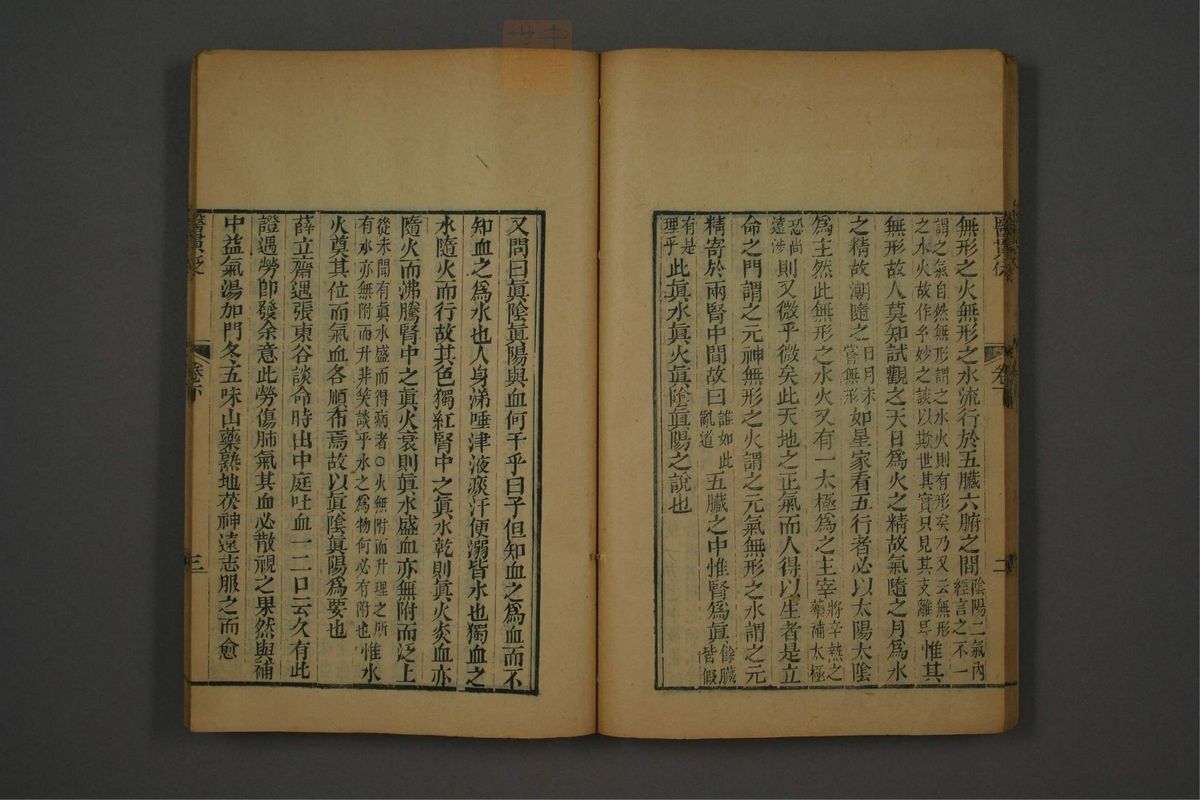 無形之火無形之水流行於五臟六腑之間陰陽二氣內經言之不一
謂之氣自然無形謂之水火則有形矣乃又云無形之水火故作乎妙之談以欺世其實只見其支離耳惟其
無形故人莫知試觀之天日爲火之精故氣隨之月爲水
之精故潮隨之日月未嘗無形如星家看五行者必以太陽太陰
爲主然此無形之水火又有一太極爲之主宰將辛熱之藥補太極
恐尚遠涉則又微乎微矣此天地之正氣而人得以生者是立
命之門謂之元神無形之火謂之元氣無形之水謂之元
精寄於兩腎中間故曰誰如此亂道五臟之中惟腎爲眞餘臟皆假
有是理乎此眞水眞火眞陰眞陽之說也
二
又問曰眞陰眞陽與血何干乎曰子但知血之爲血而不
知血之爲水也人身涕唾津液痰汗便溺皆水也獨血之
水隨火而行故其色獨紅腎中之眞水乾則眞火炎血亦
隨火而沸騰腎中之眞火衰則眞水盛血亦無附而泛上
從未聞有眞水盛而得病者○火無附而升理之所有水亦無附而升非笑談乎水之爲物何必有附也惟水
火奠其位而氣血各順布焉故以眞陰眞陽爲要也
薛立齋遇張東谷談命時出中庭吐血一二口云久有此
證遇勞卽發余意此勞傷肺氣其血必散視之果然與補
中益氣湯加門冬五味山藥熟地茯神遠志服之而愈
醫貫砭
卷下
三